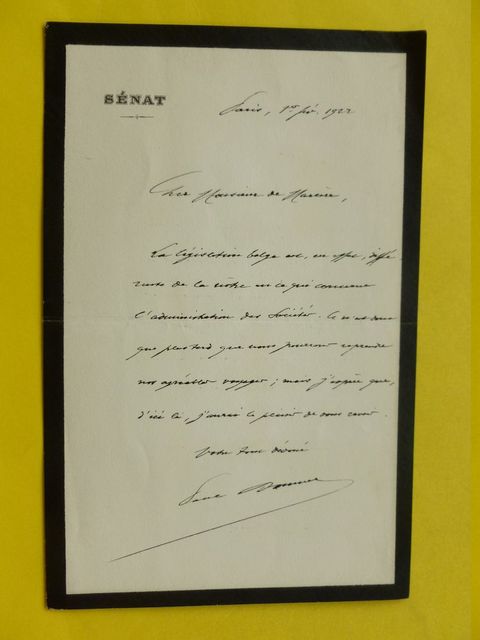 SÉNAT
Paris, 1er fév. 1922
Cher Monsieur de Marcère,
La législation belge est, en effet, diffé-
rente de la nôtre en ce qui concerne
l'administration des Sociétés. Ce n'est donc
que plus tard que nous pourrons reprendre
nos agréables voyages ; mais j'espère que,
d'ici là, j'aurai le plaisir de vous revoir.
Votre tout dévoué
Paul Doumer